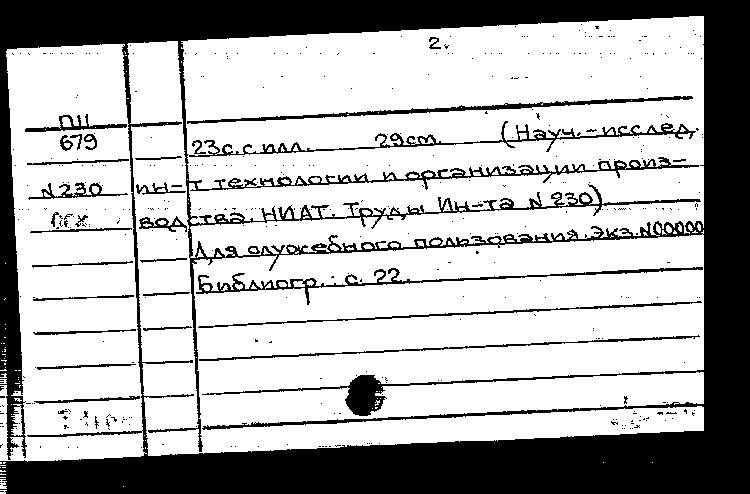 2.
П11
679 23с. с илл. 29см. (Науч.-исслед.
N230 ин-т технологии и организации произ-
водства. НИАТ. Труды Ин-та N 230)
Для служебного пользования. Экз. N00000
Библиогр.: с. 22.